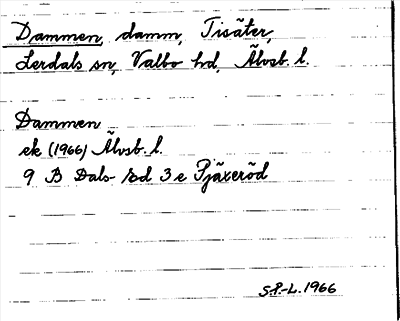 Dammen, damm, Tisäter,
Lerdals sn, Valbo hd, Älvsb. l.
Dammen
ek (1966) Älvsb. l.
9 B Dals- Ed 3 e Pjäxeröd
S.P.-L. 1966